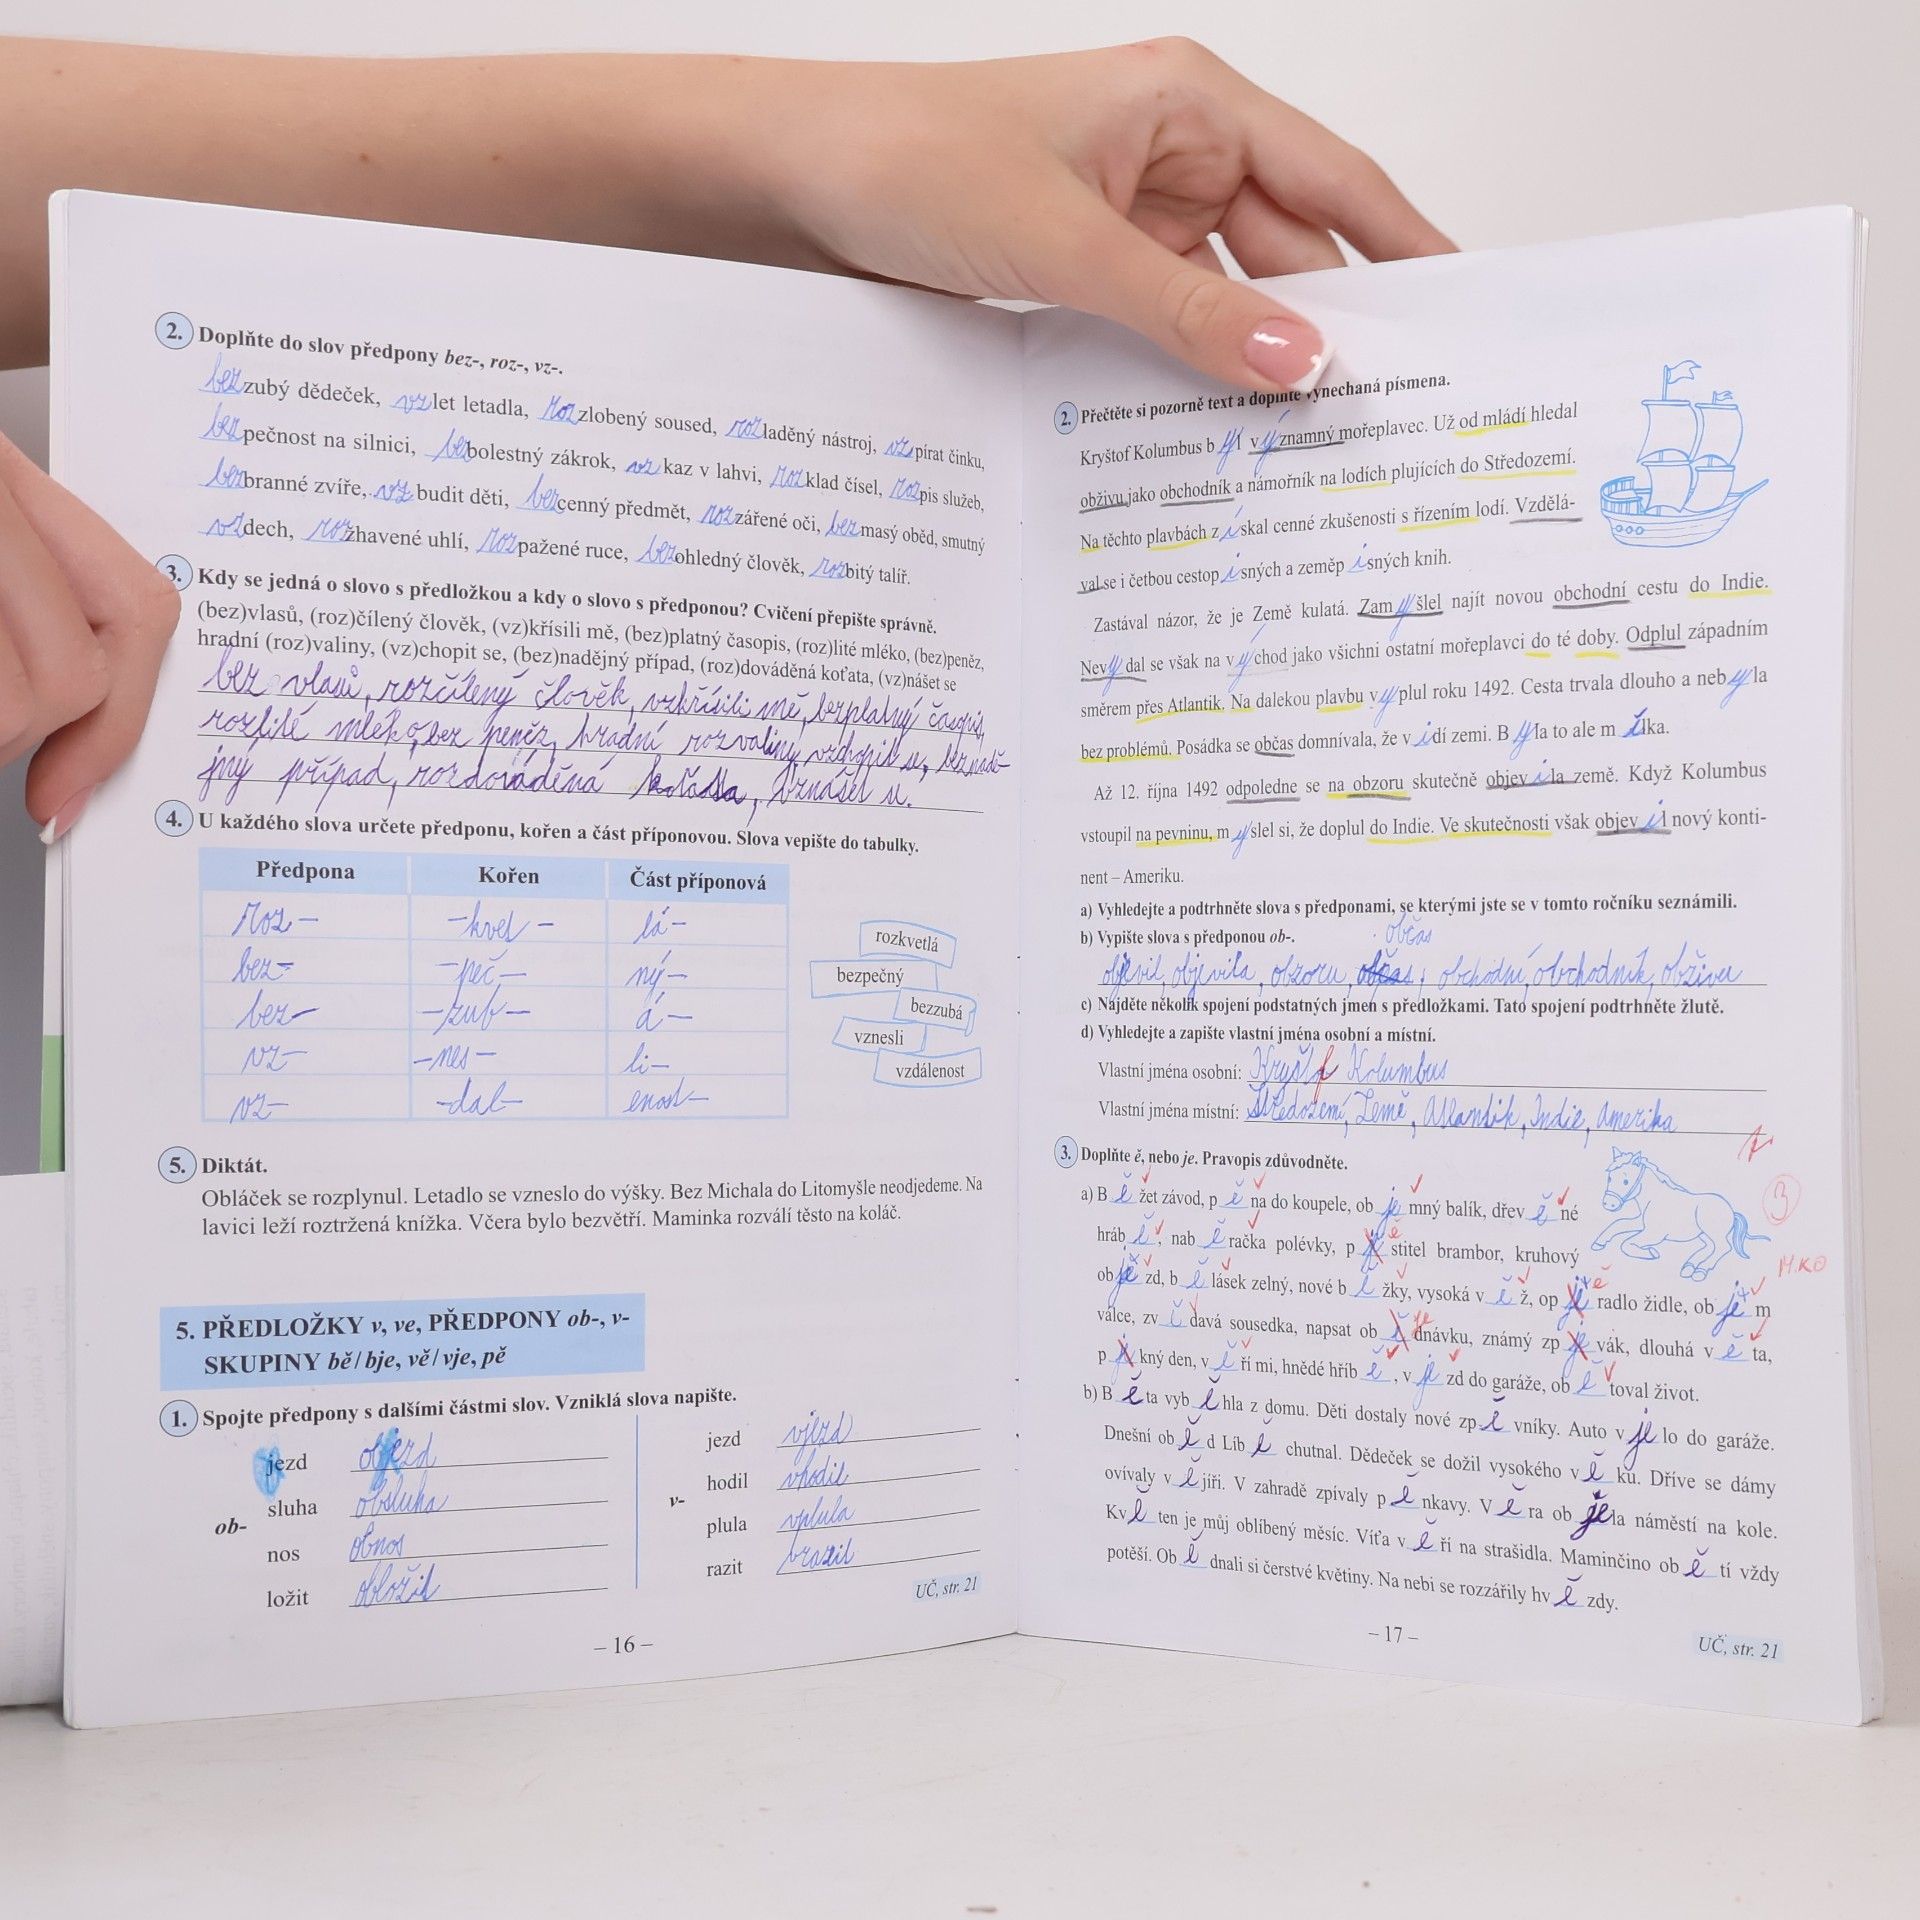 2. Doplňte do slov předpony bez-, roz-, vz-.
bezzubý dědeček, vzlet letadla, rozzlobený soused, rozladěný nástroj, vzpírat činku,
bezpečnost na silnici, bezbolestný zákrok, vzkaz v lahvi, rozklad čísel, rozpis služeb,
bezbranné zvíře, vzbudit děti, bezcenný předmět, rozzářené oči, bezmasý oběd, smutný
vzdech, rozžhavené uhlí, rozpažené ruce, bezohledný člověk, rozbitý talíř.
3. Kdy se jedná o slovo s předložkou a kdy o slovo s předponou? Cvičení přepište správně.
(bez)vlasů, (roz)čílený člověk, (vz)křísili mě, (bez)platný časopis, (roz)lité mléko, (bez)peněz,
hradní (roz)valiny, (vz)chopit se, (bez)nadějný případ, (roz)dováděná koťata, (vz)nášet se
bez vlasů, rozčílený člověk, vzkřísili mě, bezplatný časopis,
rozlité mléko, bez peněz, hradní rozvaliny, vzchopit se, beznadě-
jný případ, rozdováděná koťata, vznášet se.
4. U každého slova určete předponu, kořen a část příponovou. Slova vepište do tabulky.
Předpona Kořen Část příponová
roz- -kvet- lá-
bez- -peč- ný-
bez- -zub- á-
vz- -nes- li-
vz- -dal- enost-
rozkvetlá
bezpečný
bezzubá
vznesli
vzdálenost
5. Diktát.
Obláček se rozplynul. Letadlo se vzneslo do výšky. Bez Michala do Litomyšle neodjedeme. Na
lavici leží roztržená knížka. Včera bylo bezvětří. Maminka rozválí těsto na koláč.
5. PŘEDLOŽKY v, ve, PŘEDPONY ob-, v-
SKUPINY bě / bje, vě / vje, pě
1. Spojte předpony s dalšími částmi slov. Vzniklá slova napište.
ob-
jezd objezd
sluha obsluha
nos obnos
ložit obložit
v-
jezd vjezd
hodil vhodil
plula vplula
razit vrazit
UČ, str. 21
– 16 –
2. Přečtěte si pozorně text a doplňte vynechaná písmena.
Kryštof Kolumbus byl významný mořeplavec. Už od mládí hledal
obživu jako obchodník a námořník na lodích plujících do Středozemí.
Na těchto plavbách získal cenné zkušenosti s řízením lodí. Vzdělá-
val se i četbou cestopisných a zeměpisných knih.
Zastával názor, že je Země kulatá. Zamyšlel najít novou obchodní cestu do Indie.
Nevydal se však na východ jako všichni ostatní mořeplavci do té doby. Odplul západním
směrem přes Atlantik. Na dalekou plavbu vyplul roku 1492. Cesta trvala dlouho a nebyla
bez problémů. Posádka se občas domnívala, že vidí zemi. Byla to ale mílka.
Až 12. října 1492 odpoledne se na obzoru skutečně objevila země. Když Kolumbus
vstoupil na pevninu, myslel si, že doplul do Indie. Ve skutečnosti však objevil nový konti-
nent – Ameriku.
a) Vyhledejte a podtrhněte slova s předponami, se kterými jste se v tomto ročníku seznámili.
b) Vypište slova s předponou ob-.
občas
objevil, objevila, obzoru, občas, obchodní, obchodník, obživu
c) Najděte několik spojení podstatných jmen s předložkami. Tato spojení podtrhněte žlutě.
d) Vyhledejte a zapište vlastní jména osobní a místní.
Vlastní jména osobní: Kryštof Kolumbus
Vlastní jména místní: Středozemí, Země, Atlantik, Indie, Amerika
3. Doplňte ě, nebo je. Pravopis zdůvodněte.
a) Běžet závod, pěna do koupele, objemný balík, dřevěné
hrábě, naběračka polévky, pěstitel brambor, kruhový
objezd, bělásek zelný, nové běžky, vysoká věž, opěradlo židle, objem
válce, zvědavá sousedka, napsat objednávku, známý zpjevák, dlouhá věta,
pěkný den, věří mi, hnědé hříbě, vjezd do garáže, obětoval život.
b) Běta vyběhla z domu. Děti dostaly nové zpěvníky. Auto vjelo do garáže.
Dnešní oběd Líbě chutnal. Dědeček se dožil vysokého věku. Dříve se dámy
ovívaly vějíři. V zahradě zpívaly pěnkavy. Věra objela náměstí na kole.
Květen je můj oblíbený měsíc. Víťa věří na strašidla. Maminčino obětí vždy
potěší. Obědnali si čerstvé květiny. Na nebi se rozzářily hvězdy.
3
– 17 –
UČ, str. 21